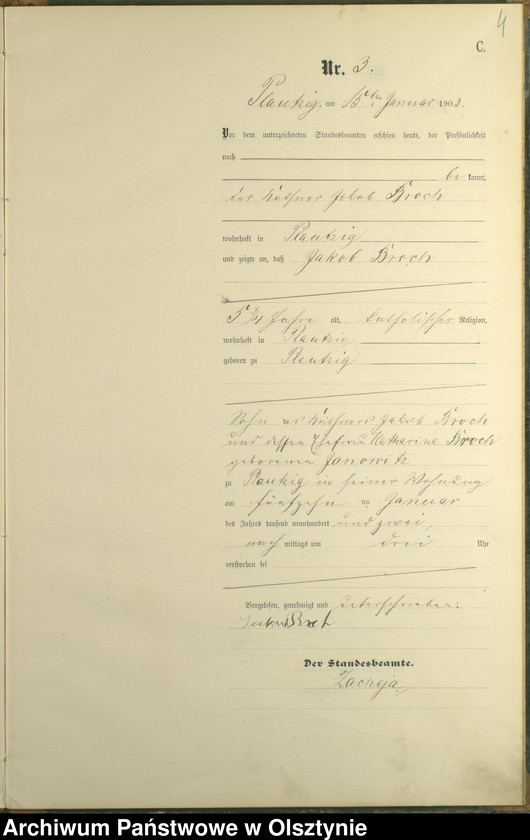 4
C.
Nr. 3.
Plautzig, am 15ten Januar 1902.
Vor dem unterzeichneten Standesbeamten erschien heute, der Persönlichkeit
nach
be kannt,
der Käthner Jakob Broch
wohnhaft in Plautzig
und zeigte an, daß Jakob Broch
5 3/4 Jahre alt, katholischer Religion,
wohnhaft in Plautzig
geboren zu Plautzig
Sohn des Käthners Jakob Broch
und dessen Ehefrau Katharina Broch
geborenen Janowitz
zu Plautzig in seiner Wohnung
am fünfzehnten Januar
des Jahres tausend neunhundert und zwei,
nach mittags um drei Uhr
verstorben sei
Vorgelesen, genehmigt und unterschrieben:
Der Standesbeamte.
Zacheja
Archiwum Państwowe w Olsztynie